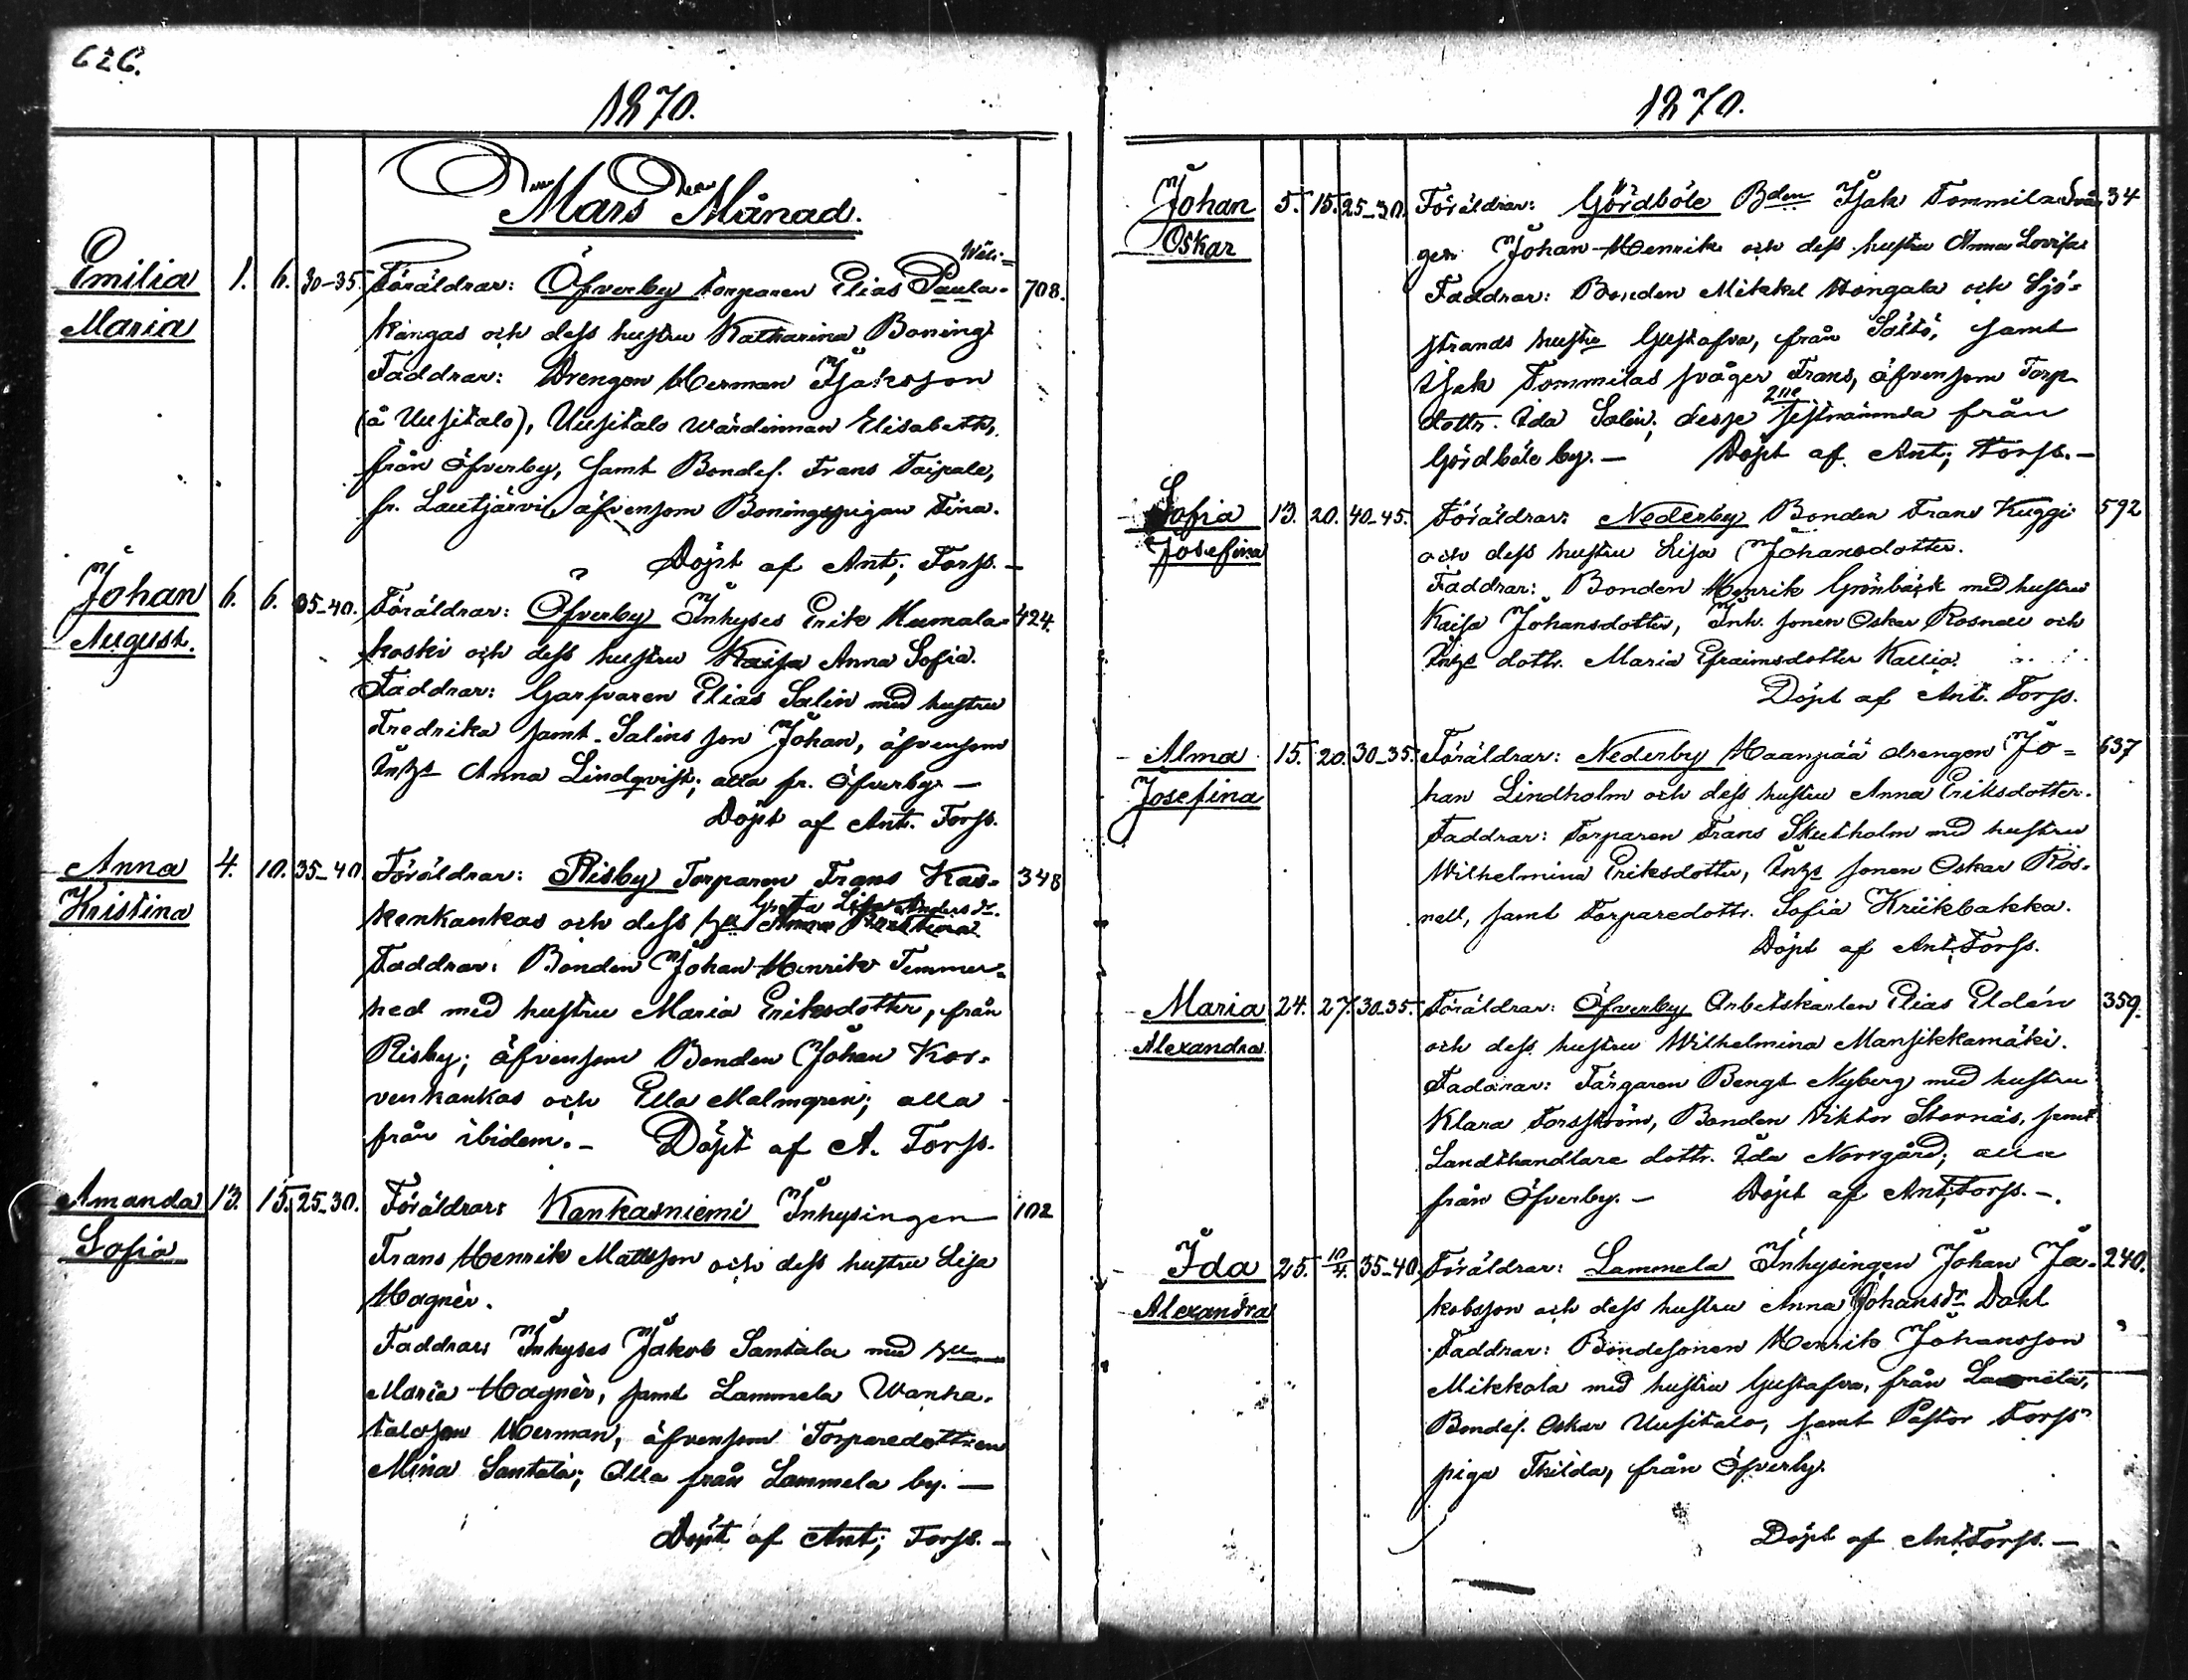 626.
1870.
Mars Månad.
Emilia Maria 1. 6. 30-35. Föräldrar: Öfverby torparen Elias Wäli= Paula- 708.
kangas och dess hustru Katharina Boning
Faddrar: Drengen Herman Isaksson
(å Uusitalo), Uusitalo wärdinnan Elisabeth,
från Öfverby, samt Bondes. Frans Taipale,
fr. Lautjärvi, äfvensom Boningspigan Fina.
Döpt af Ant; Forss. -
Johan August. 6. 6. 35-40. Föräldrar: Öfverby Inhyses Erik Humala- 424.
koski och dess hustru Kaisa Anna Sofia.
Faddrar: Garfvaren Elias Salin med hustru
Fredrika samt Salins son Johan, äfvensom
Inhs Anna Lindqvist; alla fr. Öfverby. -
Döpt af Ant. Forss.
Anna Kristina 4. 10. 35-40 Föräldrar: Risby Torparen Frans Kas- 348
kenkankas och dess hu Greta Lisa Anders dr. Anna Kristina
Faddrar: Bonden Johan Henrik Temmer-
hed med hustru Maria Eriksdotter, från
Risby; äfvensom Bonden Johan Kor-
venkankas och Ella Malmgren; alla
från ibidem. - Döpt af A. Forss.
Amanda Sofia 13. 15. 25-30. Föräldrar: Kankasniemi Inhysingen 102
Frans Henrik Mattsson och dess hustru Lisa
Hagnér.
Faddrar: Inhyses Jakob Santala med hu
Maria Hagnér, samt Lammela Wanha-
taloson Herman, äfvensom Torparedottren
Mina Santala; Alla från Lammela by. -
Döpt af Ant; Forss. -
1870.
Johan Oskar 5. 15. 25-30. Föräldrar: Gördböle Bden Isak Tommila Svå- 34
ger Johan Henrik och dess hustru Anna Lovisa
Faddrar: Bonden Mikkel Hongala och Sjö-
strands hustru Gustafva, från Saltö, samt
Isak Tommilas svåger Frans, äfvensom Torp
dottr. Ida Salin; desse 2ne sistnämnda från
Gördböle by. - Döpt af. Ant; Forss. -
Sofia Josefina 13. 20. 40-45. Föräldrar: Nederby Bonden Frans Kuggi 592
och dess hustru Lisa Johansdotter.
Faddrar: Bonden Henrik Grönbäck med hustru
Kaisa Johansdotter, Inh. sonen Oskar Rosnell och
Inhs dottr. Maria Efraimsdotter Kallio.
Döpt af Ant. Forss.
Alma Josefina 15. 20. 30-35. Föräldrar: Nederby Haanpää drengen Jo= 537
han Lindholm och dess hustru Anna Eriksdotter.
Faddrar: Torparen Frans Skutholm med hustru
Wilhelmina Eriksdotter, Inhs sonen Oskar Ros-
nell, samt Torparedottr. Sofia Kriikbakka.
Döpt af Ant. Forss.
Maria Alexandra 24. 27. 30-35. Föräldrar: Öfverby Arbetskarlen Elias Eldén 359.
och dess hustru Wilhelmina Mansikkamäki.
Faddrar: Färgaren Bengt Nyberg med hustru
Klara Forsström, Bonden Viktor Stornäs, samt
Landthandlare dottr. Ida Norrgård; alla
från Öfverby. - Döpt af Ant; Forss. -.
Ida Alexandra 25. 10/4. 35-40. Föräldrar: Lammela Inhysingen Johan Ja- 240.
kobsson och dess hustru Anna Johansdr Dahl
Faddrar: Bondesonen Henrik Johansson
Mikkola med hustru Gustafva, från Lammela,
Bondes. Oskar Uusitalo, samt Pastor Forss'
piga Thilda, från Öfverby.
Döpt af Ant. Forss. -